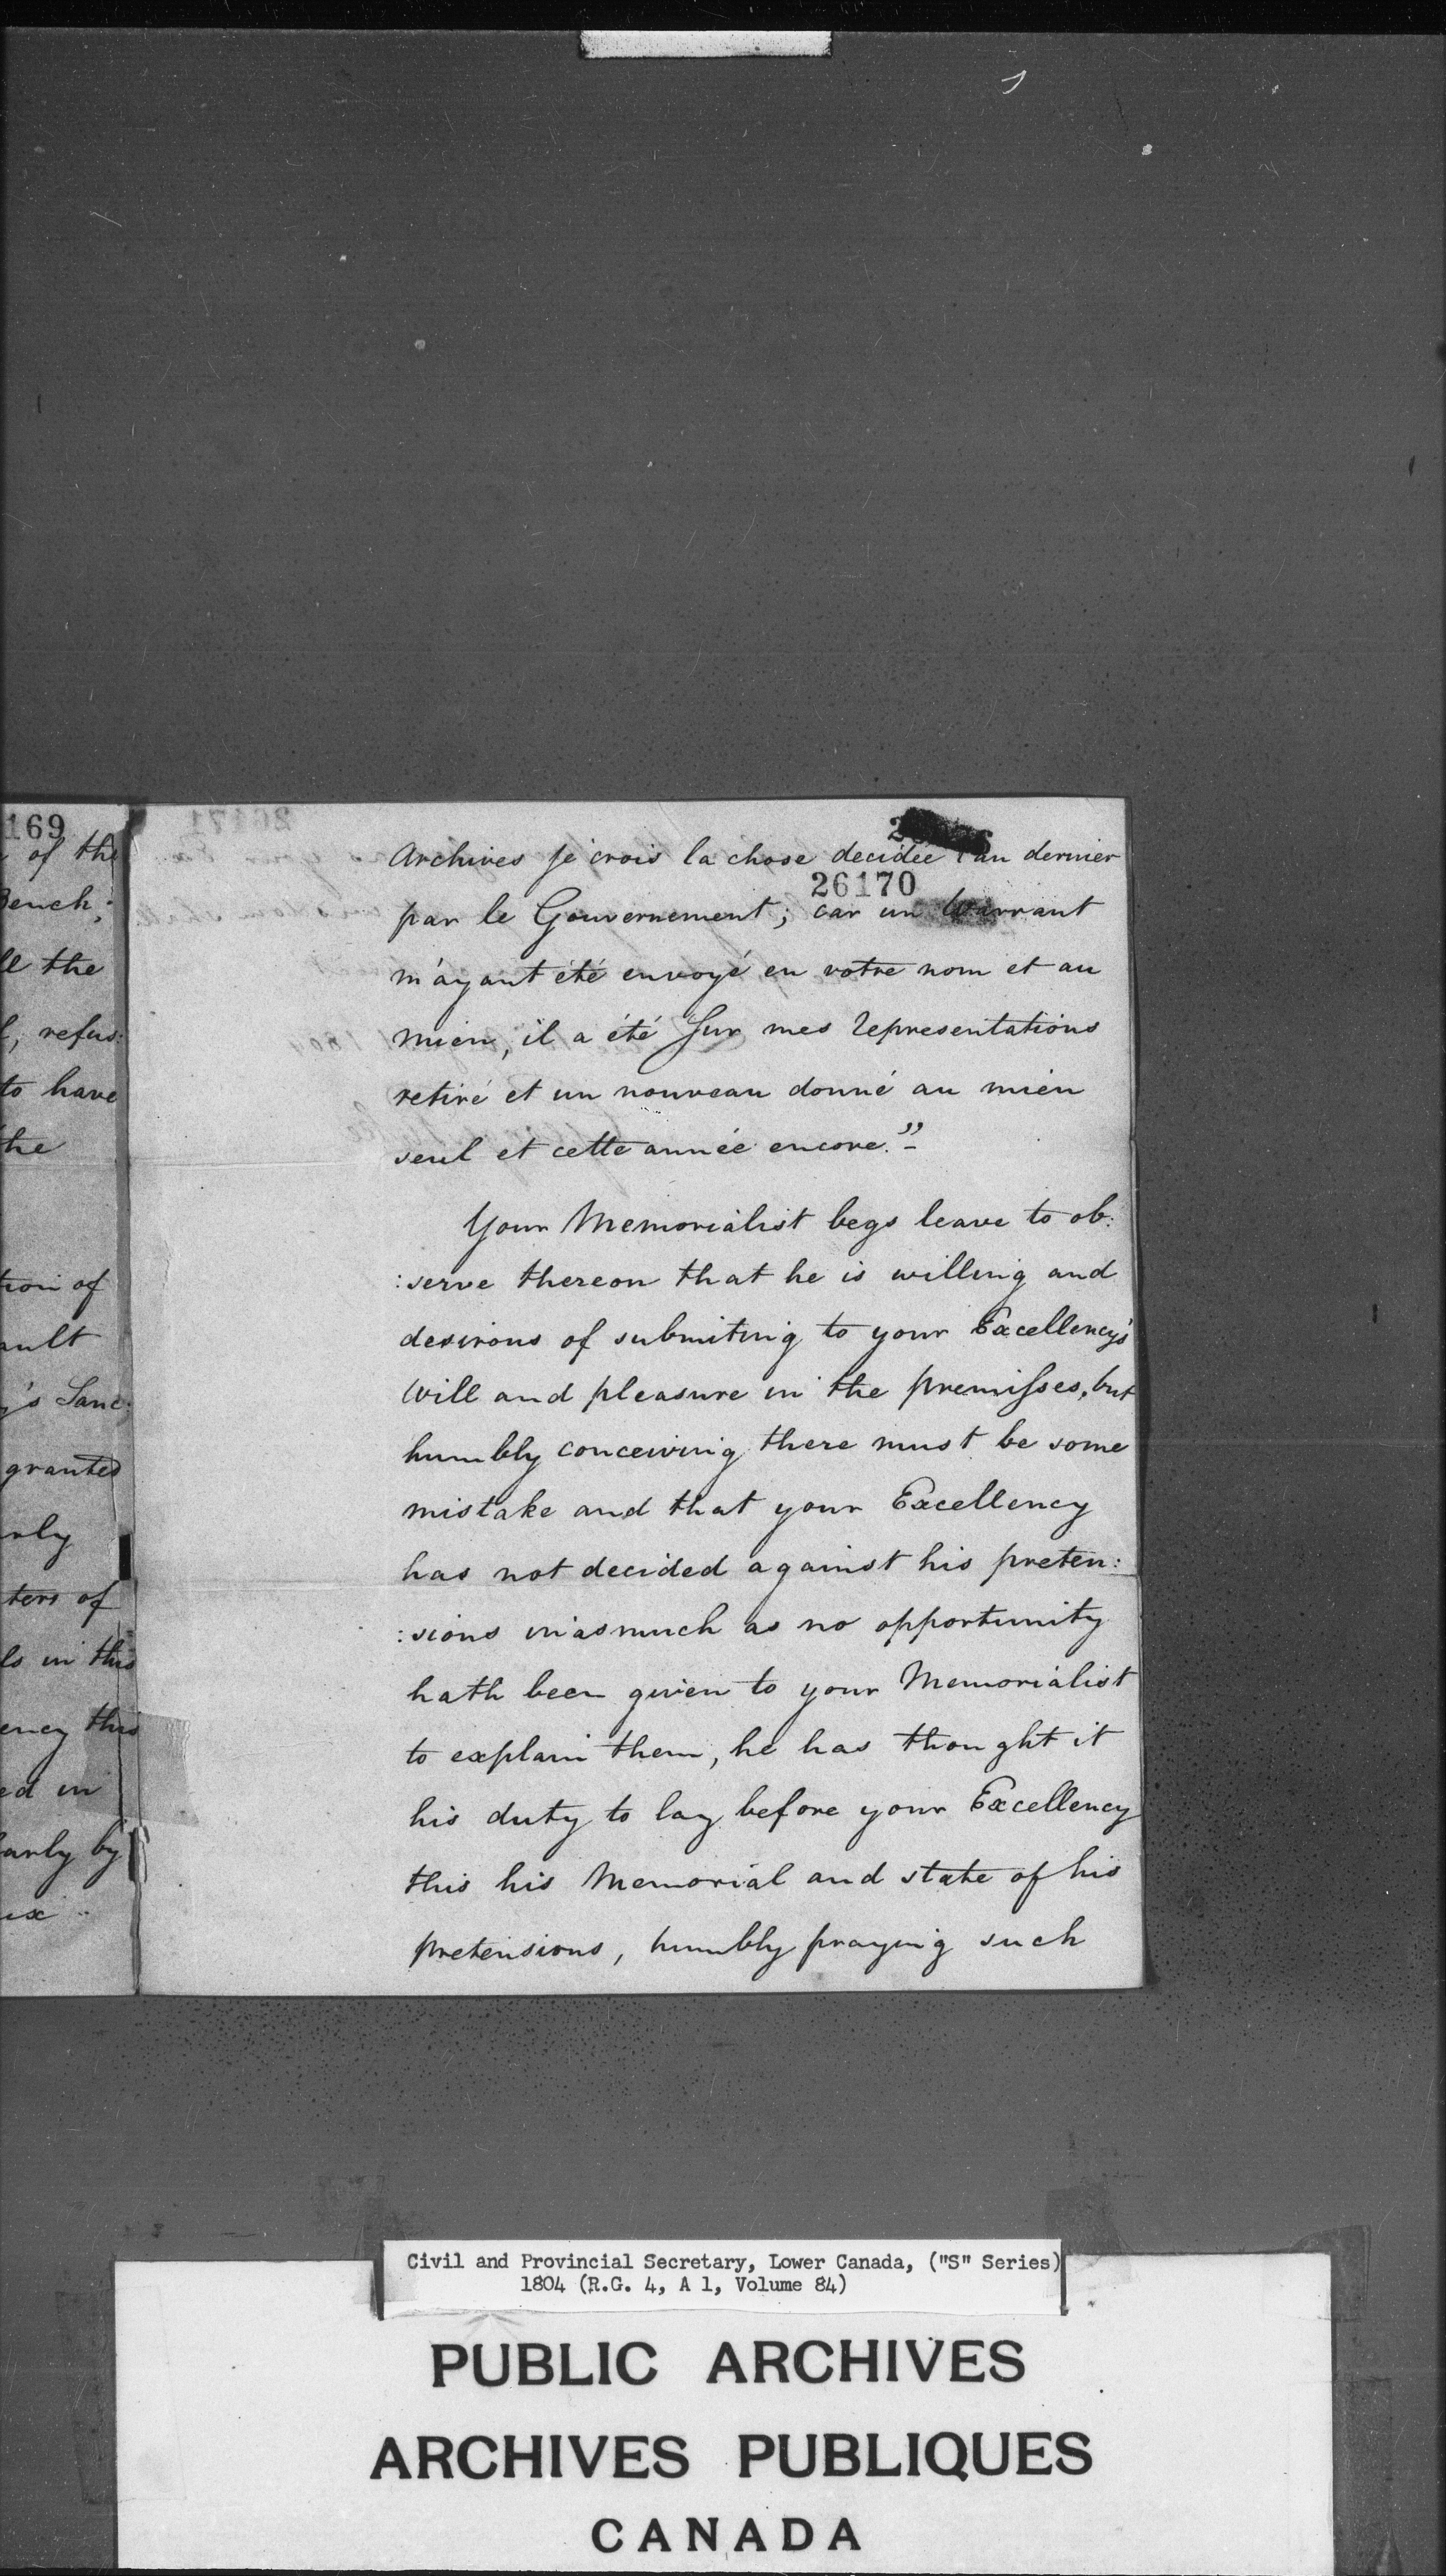 169
of the
Bench:
ll the
l, refus:
to have
the
tion of
ault
y's Sanc:
granted
rly
ters of
ls in this
ency this
ed in
arly by
ix
Archives je crois la chose decidée l'an dernier
26170
par le Gouvernement; car un Warrant
m'ayant été envoyé en votre nom et au
mien, il a été sur mes representations
retiré et un nouveau donné au mien
seul et cette année encore."
Your Memorialist begs leave to ob:
:serve thereon that he is willing and
desirous of submiting to your Excellency's
Will and pleasure in the premisses, but
humbly conceiving there must be some
mistake and that your Excellency
has not decided against his preten:
:sions inasmuch as no opportunity
hath been given to your Memorialist
to explain them, he has thought it
his duty to lay before your Excellency
this his Memorial and state of his
pretensions, humbly praying such
Civil and Provincial Secretary, Lower Canada, ("S" Series)
1804 (R.G. 4, A 1, Volume 84)
PUBLIC ARCHIVES
ARCHIVES PUBLIQUES
CANADA